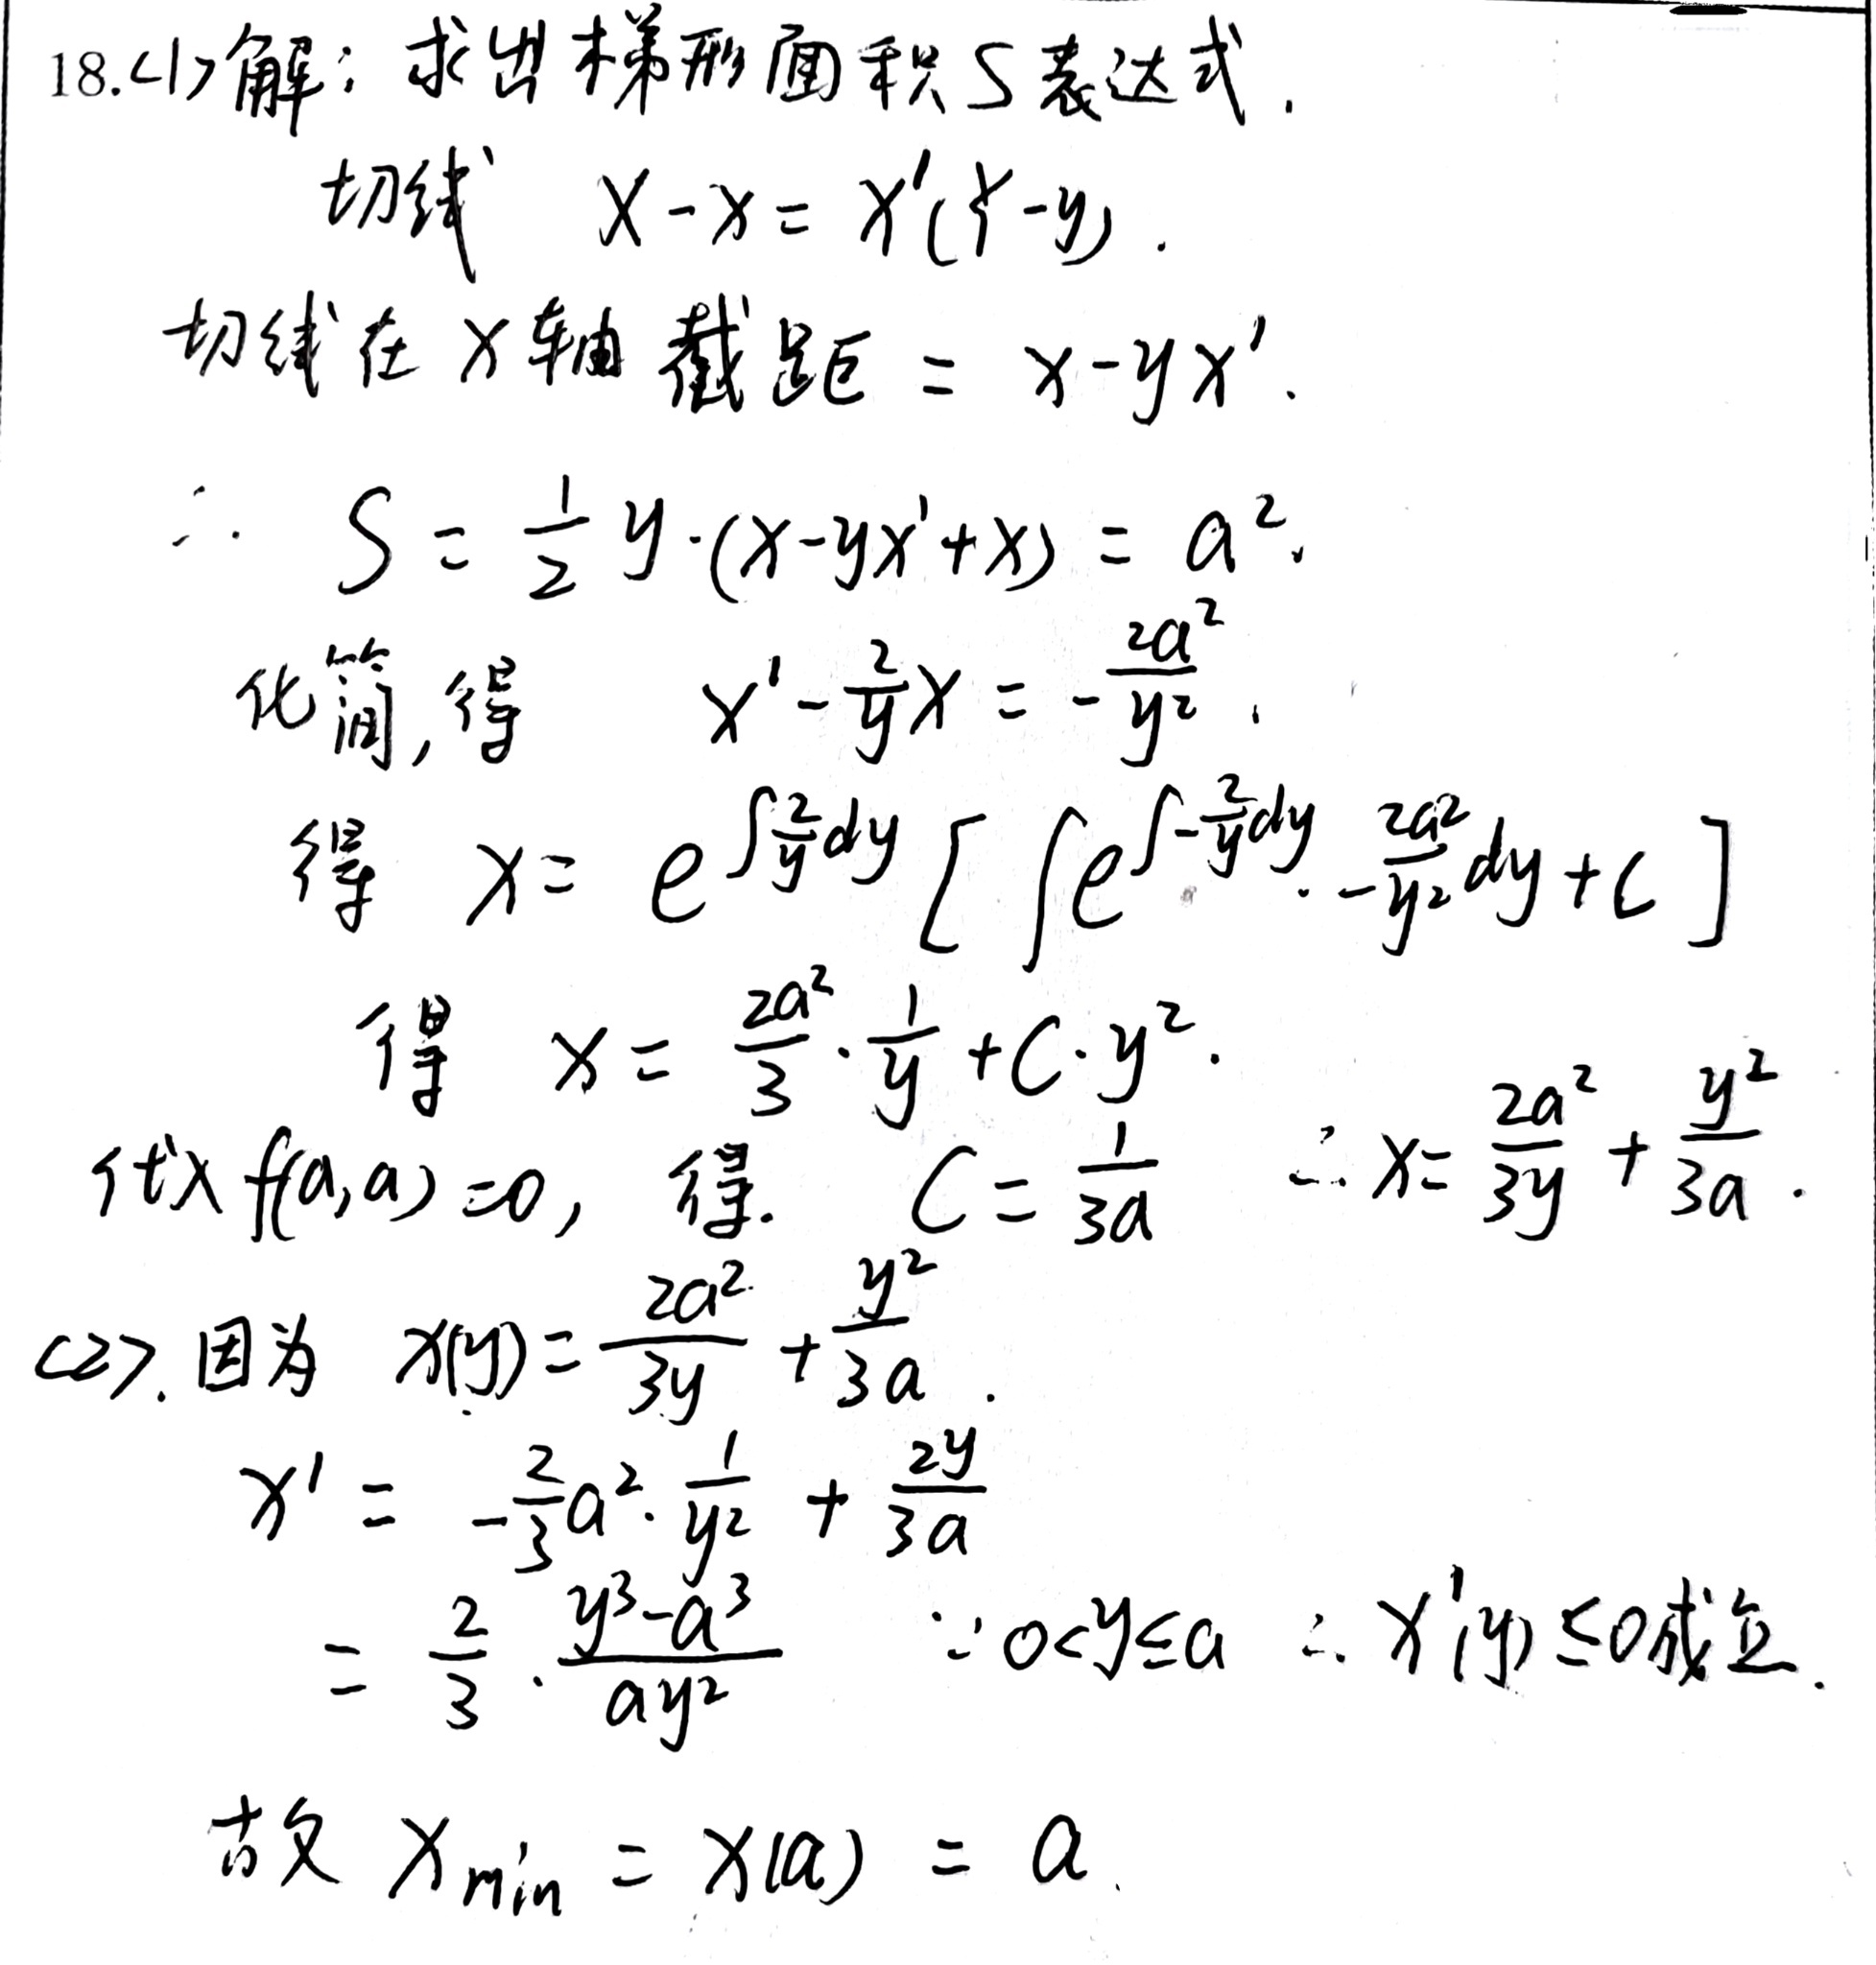 18.<1>解：求出梯形面积S表达式.
切线 X-x=x'(Y-y).
切线在x轴截距=x-yx'.
∴ S=\frac{1}{2}y·(x-yx'+x)=a².
化简,得 x'-\frac{2}{y}x=-\frac{2a²}{y²}.
得 x=e^{∫\frac{2}{y}dy}[∫e^{∫-\frac{2}{y}dy}·-\frac{2a²}{y²}dy+C]
得 x=\frac{2a²}{3}·\frac{1}{y}+C·y².
代入f(a,a)=0, 得. C=\frac{1}{3a} ∴x=\frac{2a²}{3y}+\frac{y²}{3a}.
<2>.因为 x(y)=\frac{2a²}{3y}+\frac{y²}{3a}.
x'=-\frac{2}{3}a²·\frac{1}{y²}+\frac{2y}{3a}
=\frac{2}{3}·\frac{y³-a³}{ay²} ∵0<y≤a ∴x'(y)≤0成立.
故 x_{min}=x(a)=a.